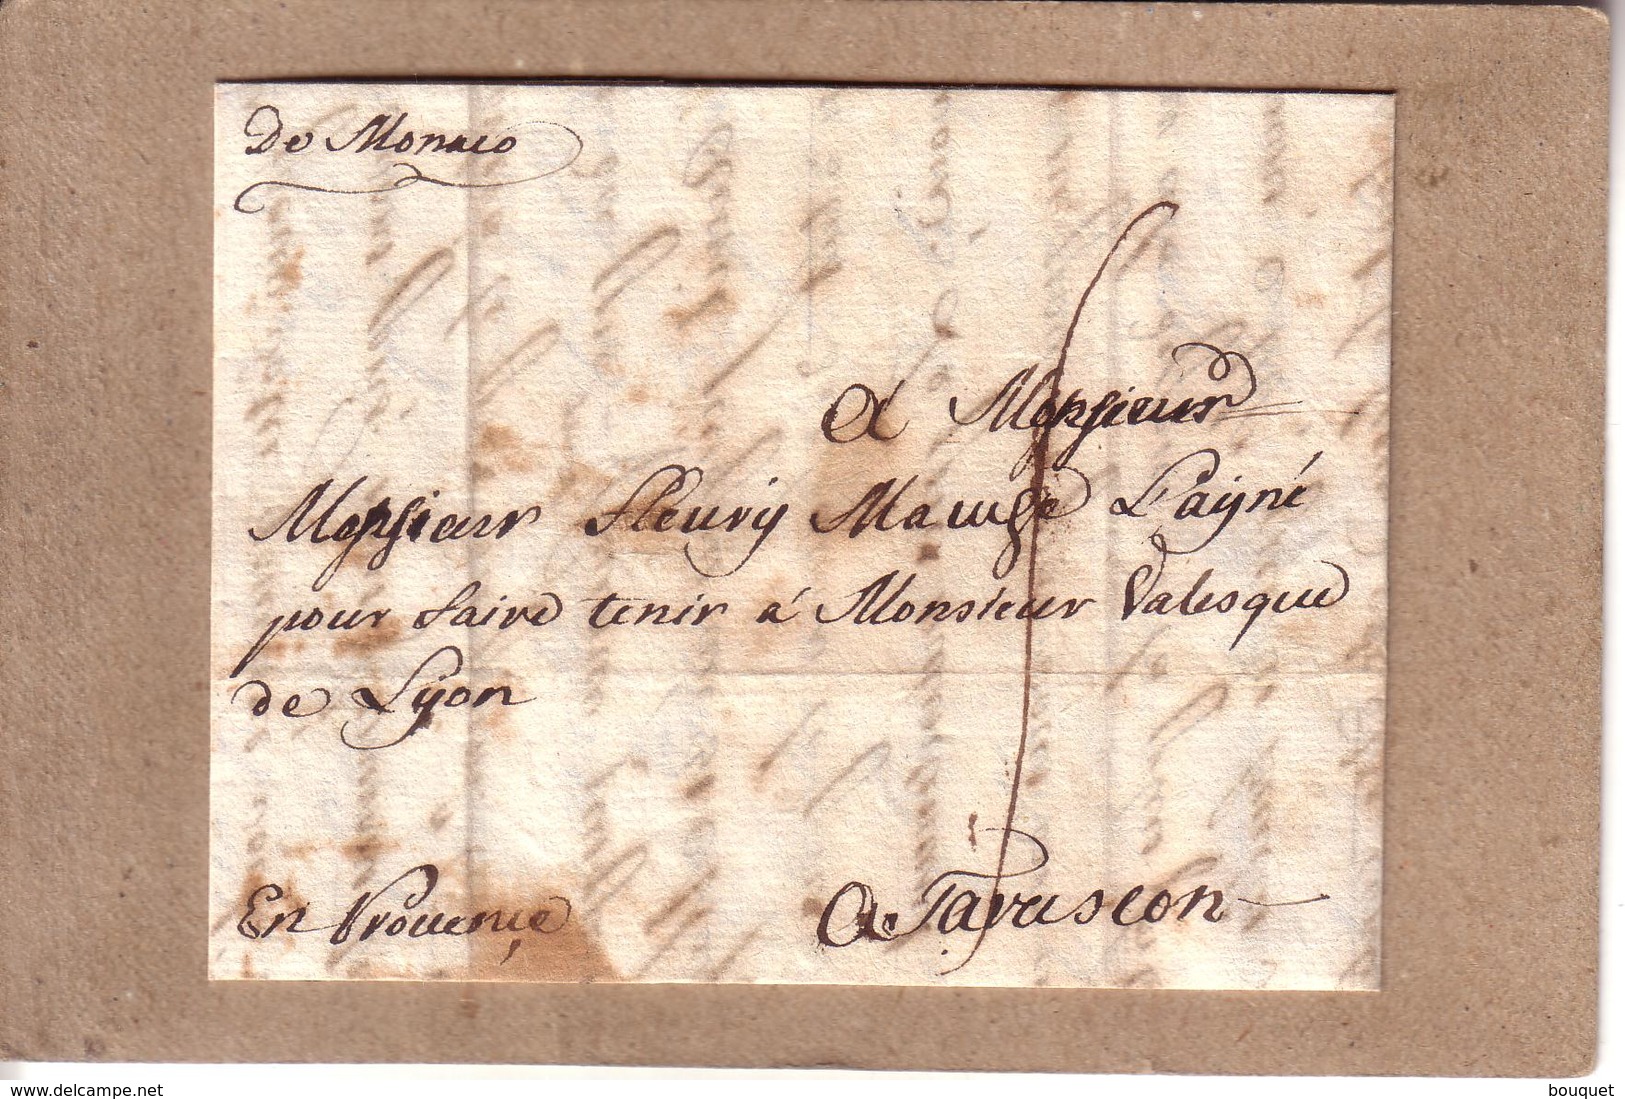 De Monaco
A Monsieur
Monsieur Fleury Mauge L'ayné
pour faire tenir á Monsieur Valesque
de Lyon
En Provençe
A Tarascon
www.delcampe.net
bouquet